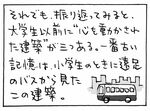 それでも、振り返ってみると、
大学生以前に“心を動かされ
た建築”が三つある。一番古い
記憶は、小学生のときに遠足
のバスから見た
この建築。